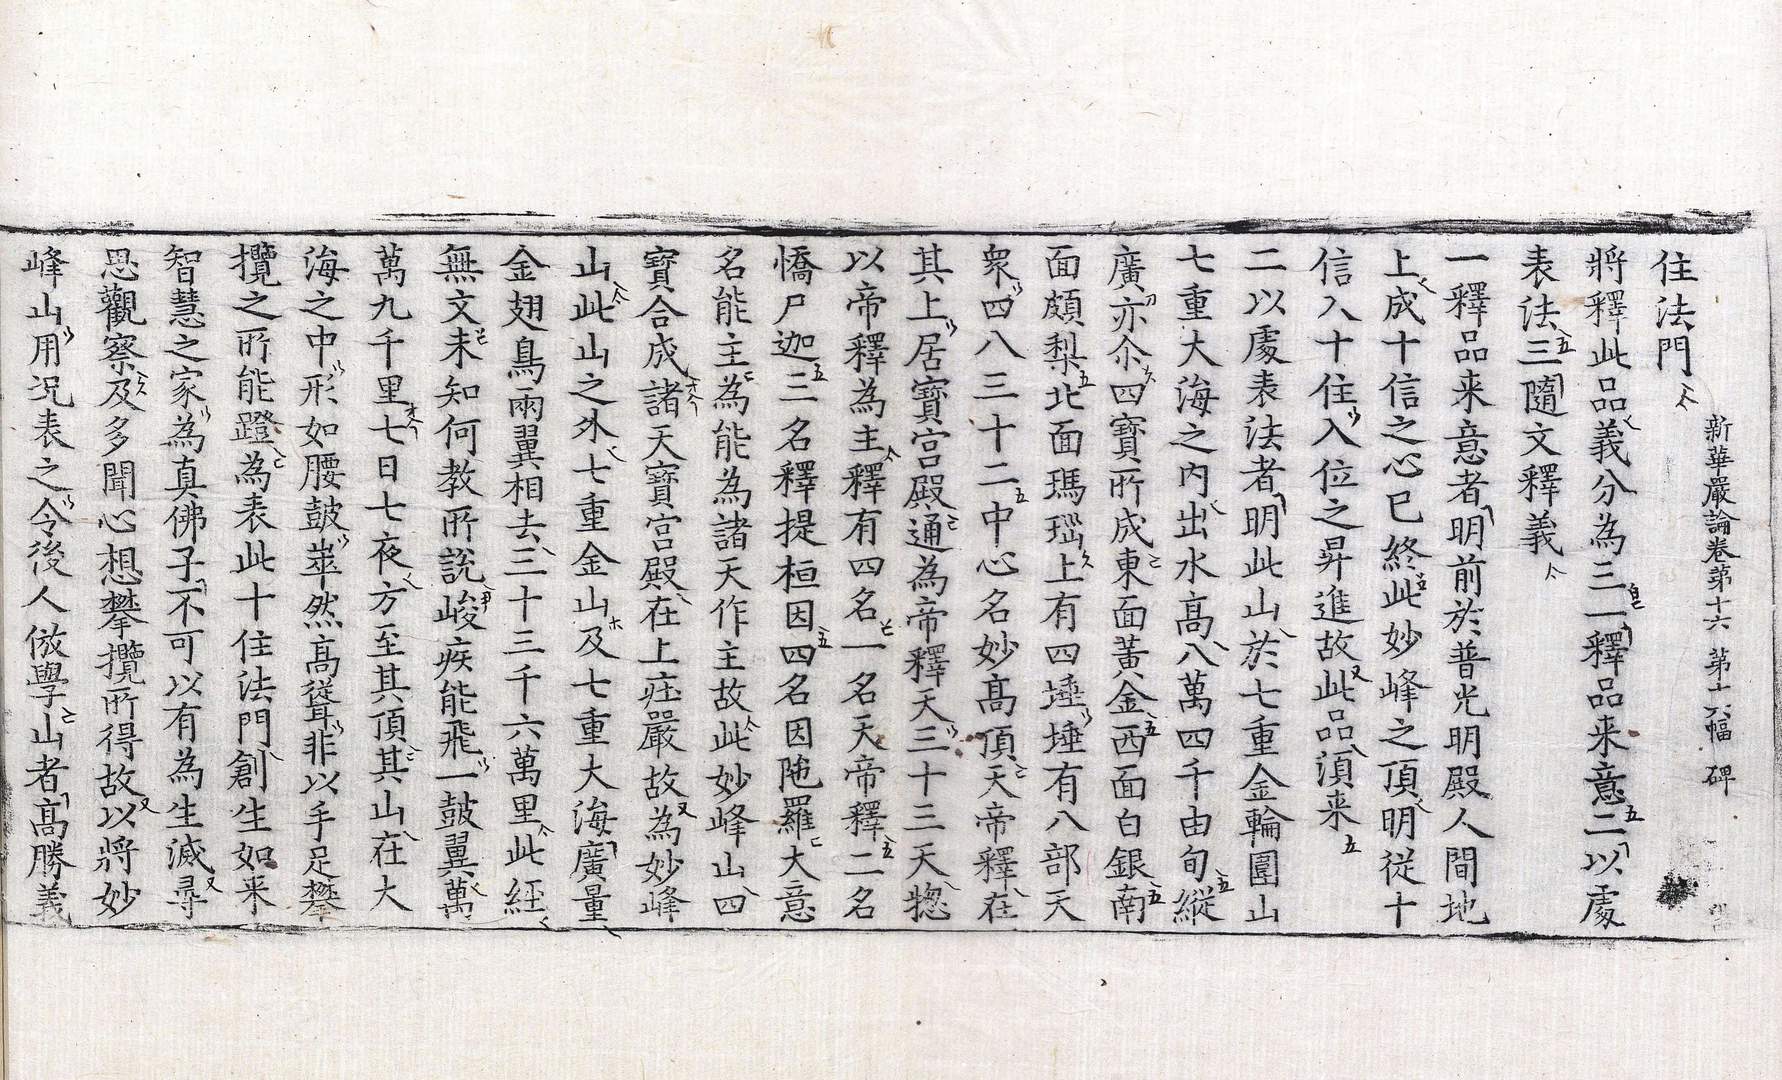 新華嚴論卷第十六 第十六幅 碑
住法門
將釋此品義分為三一釋品来意二以處
表法三隨文釋義
一釋品来意者明前於普光明殿人間地
上成十信之心已終此妙峰之頂明従十
信入十住入位之昇進故此品湏来
二以處表法者明此山於七重金輪圍山
七重大海之内出水高八萬四千由旬縱
廣亦尒四寶所成東面黃金西面白銀南
面頗梨北面瑪瑙上有四埵埵有八部天
衆四八三十二中心名妙高頂天帝釋在
其上居寶宫殿通為帝釋天三十三天揔
以帝釋為主釋有四名一名天帝釋二名
憍尸迦三名釋提桓因四名因陁羅大意
名能主為能為諸天作主故此妙峰山四
寶合成諸天寶宫殿在上莊嚴故為妙峰
山此山之外七重金山及七重大海廣量
金翅鳥兩翼相去三十三千六萬里此經
無文未知何教所說峻疾能飛一鼓翼萬
萬九千里七日七夜方至其頂其山在大
海之中形如腰鼓崒然高聳非以手足攀
攬之所能蹬為表此十住法門創生如来
智慧之家為真佛子不可以有為生滅尋
思觀察及多聞心想攀攬所得故以將妙
峰山用况表之令後人倣學山者高勝義